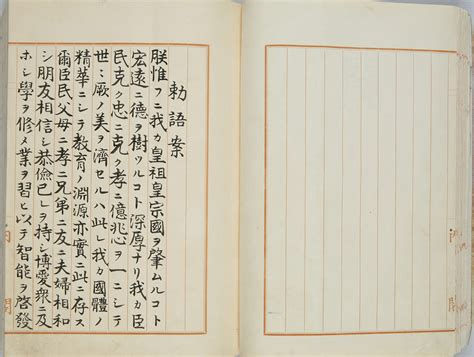 勅語案
朕惟フニ我カ皇祖皇宗國ヲ肇ムルコト
宏遠ニ德ヲ樹ツルコト深厚ナリ我カ臣
民克ク忠ニ克ク孝ニ億兆心ヲ一ニシテ
世〻厥ノ美ヲ濟セルハ此レ我カ國體ノ
精華ニシテ教育ノ淵源亦實ニ此ニ存ス
爾臣民父母ニ孝ニ兄弟ニ友ニ夫婦相和
シ朋友相信シ恭儉己レヲ持シ博愛衆ニ及
ホシ學ヲ修メ業ヲ習ヒ以テ智能ヲ啓發
内閣